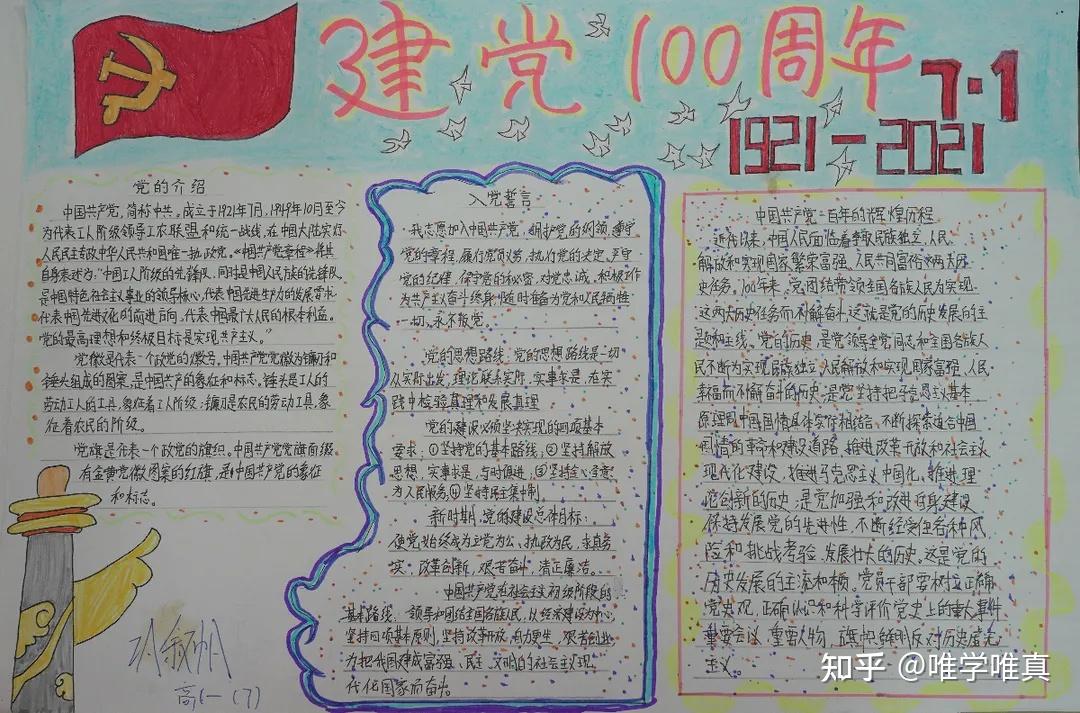 建党100周年
7·1
1921-2021
党的介绍
中国共产党,简称中共。成立于1921年7月,1949年10月至今
为代表工人阶级领导工农联盟和统一战线,在中国大陆实行
人民民主专政中华人民共和国唯一执政党。《中国共产党章程》将其
自身表述为:“中国工人阶级的先锋队,同时是中国人民族的先锋队,
是中国特色社会主义事业的领导核心,代表中国先进生产力的发展需求,
代表中国先进文化的前进方向,代表中国最广大人民的根本利益。
党的最高理想和终极目标是实现共产主义。”
党徽是代表一个政党的徽号。中国共产党党徽为镰刀和
锤头组成的图案,是中国共产的象征和标志。锤头是工人的
劳动工人的工具,象征着工人阶级;镰刀是农民的劳动工具,象
征着农民的阶级。
党旗是代表一个政党的旗织。中国共产党党旗面缀
有金黄党徽图案的红旗,是中国共产党的象征
和标志。
高(一)(7)
入党誓言
我志愿加入中国共产党,拥护党的纲领,遵守
党的章程,履行党员义务,执行党的决定,严守
党的纪律,保守党的秘密,对党忠诚,积极工作
为共产主义奋斗终身,随时准备为党和人民牺牲
一切,永不叛党。
党的思想路线:党的思想路线是一切
从实际出发,理论联系实际,实事求是,在实
践中检验真理和发展真理
党的建设必须坚决实现的四项基本
要求:①坚持党的基本路线;②坚持解放
思想,实事求是,与时俱进;③坚持全心全意
为人民服务④坚持民主集中制。
新时期,党的建设总体目标:
使党始终成为立党为公,执政为民,求真务
实,改革创新,艰苦奋斗,清正廉洁。
中国共产党在社会主义初级阶段的
基本路线:领导和团结全国各族人民,以经济建设为中心,
坚持四项基本原则,坚持改革开放,自力更生,艰苦创业,
为把我国建成富强、民主、文明的社会主义现
代化国家而奋斗。
中国共产党一百年的辉煌历程
近代以来,中国人民面临着争取民族独立、人民
解放和实现国家繁荣富强、人民共同富裕这两大历
史任务。100年来,党团结带领全国各族人民为实现
这两大历史任务而不懈奋斗,这就是党的历史发展的主
题和主线。党的历史,是党领导全党同志和全国各族人
民不断为实现民族独立、人民解放和实现国家富强、人民
幸福而不懈奋斗的历史;是党坚持把马克思主义基本
原理同中国国情具体实际相结合,不断探索适合中国
国情的革命和建设道路,推进改革开放和社会主义
现代化建设,推进马克思主义中国化,推进理
论创新的历史,是党加强和改进自身建设,
保持发展党的先进性,不断经受住各种风
险和挑战考验,发展壮大的历史。这是党的
历史发展的主流和本质。党员干部要树立正确
党史观,正确认识和科学评价党史上的重大事件、
重要会议、重要人物,旗帜鲜明反对历史虚无
主义。
知乎 @唯学唯真